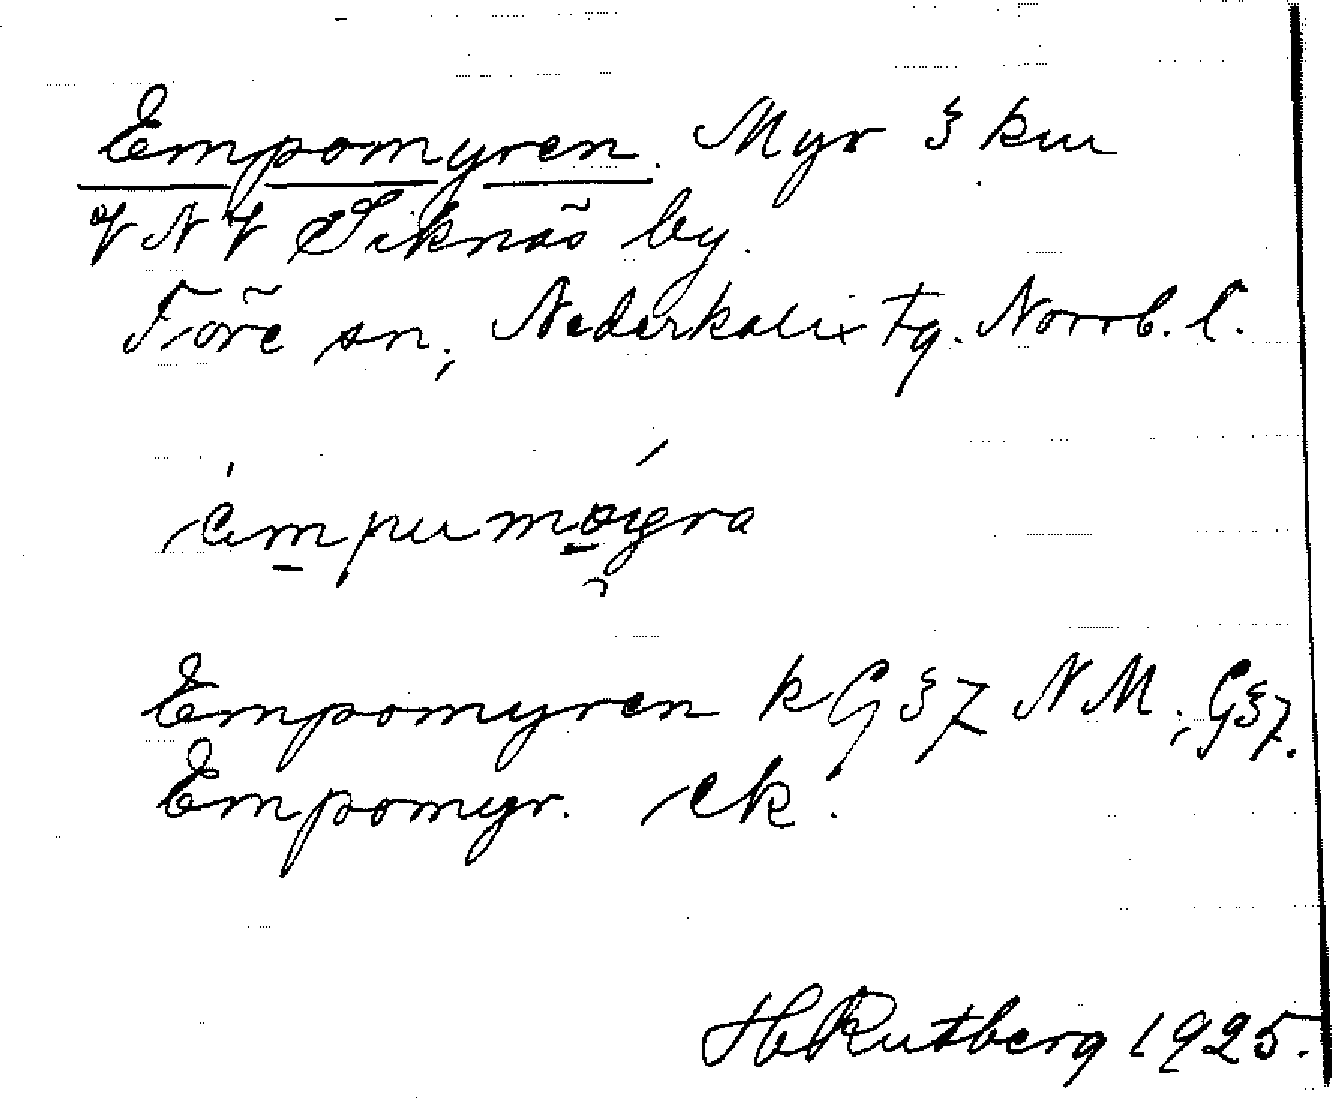 Empomyren. Myr 3 km
V N V Siknäs by.
Töre sn, Nederkalix tg. Norrb. l.
empumøyra
Empomyren k G 37 N M; G 37.
Empomyr. ek.
H Rutberg 1925.